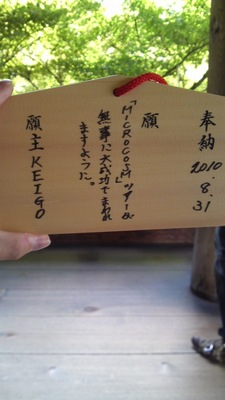 奉納 2010.8.31
願
「MICROCOSM」ツアーが
無事に大成功でまわれ
ますように。
願主 KEIGO